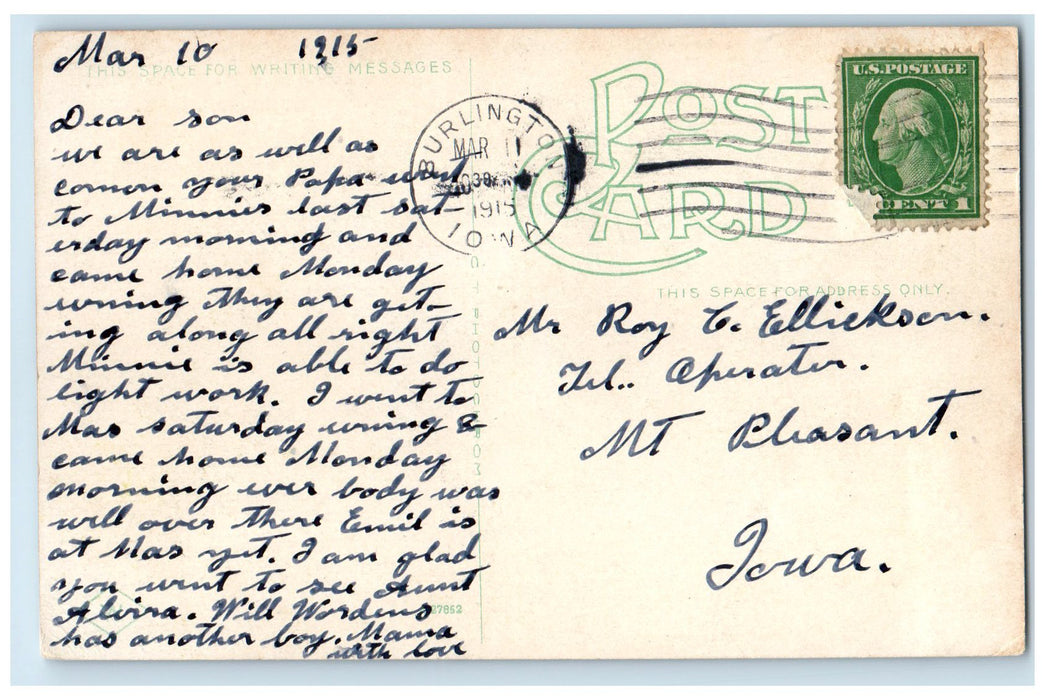 Mar 10 1915
THIS SPACE FOR WRITING MESSAGES
Dear son
we are as well as
comon your Papa went
to Minnies last sat-
erday morning and
came home Monday
evning they are get-
ing along all right
Minnie is able to do
light work. I went to
Mas saturday evning &
came home Monday
morning ever body was
well over there Emil is
at Mas yet. I am glad
you went to see Aunt
Alvira. Will Wordens
has another boy. Mama
with love
BURLINGTON
MAR 11
1915
IOWA
POST CARD
U.S. POSTAGE
CENTS 1
THIS SPACE FOR ADDRESS ONLY.
Mr Roy C. Ellickson.
Tel.. Operator.
Mt Pleasant.
Iowa.
37852